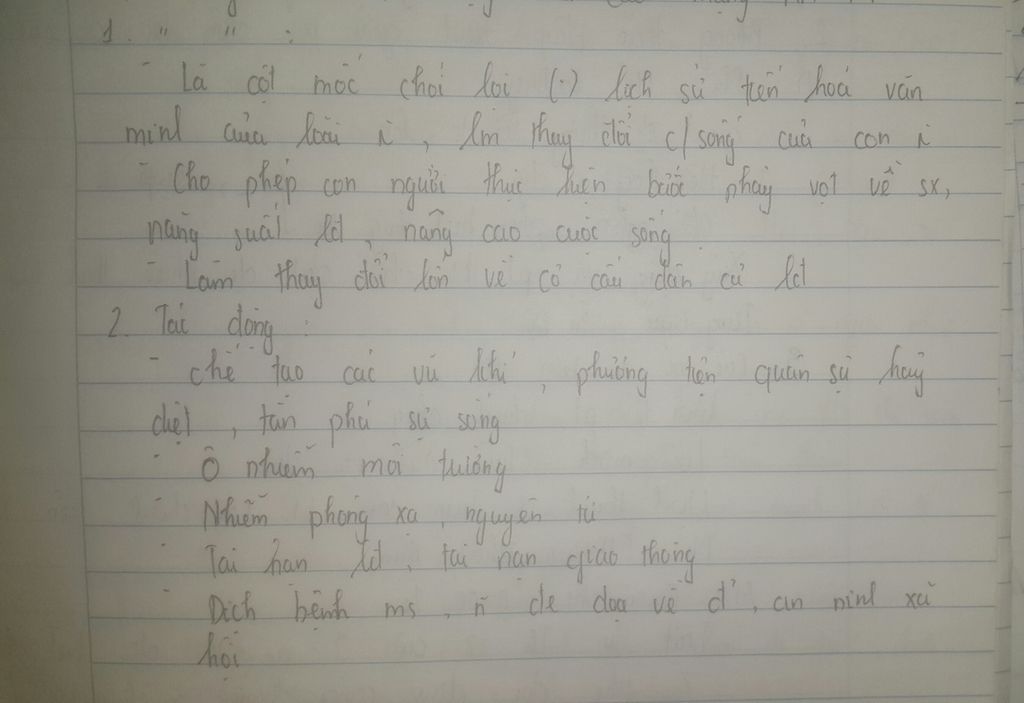 1. " " :
- Là cột mốc chói lọi (.) lịch sử tiến hoá văn
minh của loài ì, lm thay đổi c/sống của con ì
- Cho phép con người thực hiện bước phảy vọt về sx,
năng suất lđ, nâng cao cuộc sống.
- Làm thay đổi lớn về cơ cấu dân cư lđ
2. Tác động :
- chế tạo các vũ khí, phương tiện quân sự hủy
diệt, tàn phá sự sống
- Ô nhiễm môi trường
- Nhiễm phóng xạ, nguyên tử
- Tai nạn lđ, tai nạn giao thông
- Dịch bệnh ms, đe doạ về an ninh xã
hội